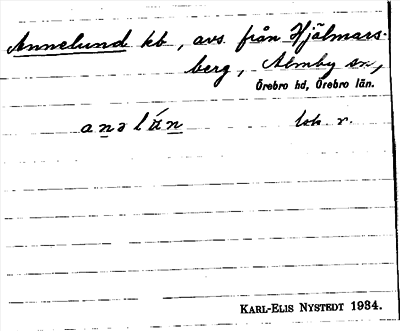 Annelund kb, avs. från Hjälmars-
berg, Almby sn,
Örebro hd, Örebro län.
anəlán lok. v.
KARL-ELIS NYSTEDT 1934.